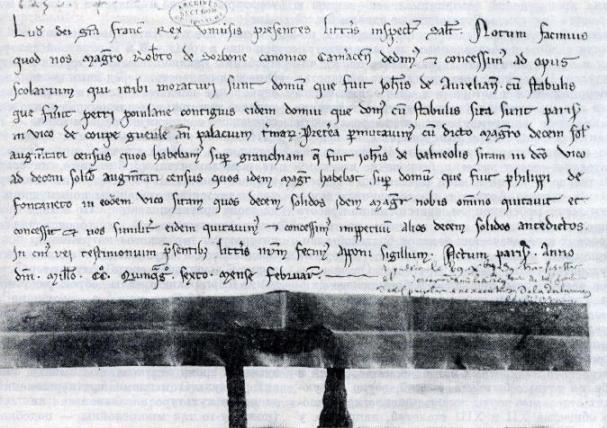 Lud' dei gr̃a Franc̃ Rex Univ̾sis presentes litt̾as inspect̾ salt̃. Notum facimus
quod nos mag̃ro Rob̃to de Sorbone canonico Cam̾acen̾ dedim̾ ⁊ concessim̾ ad opus
scolarium qui inibi moraturi sunt domũ que fuit joh̃is de Aurelian̾ cũ stabulis
que fuer̃t petri poulane contiguis eidem domui que dom̾ cũ stabulis sita sunt paris̾
in vico de coupe gueule an̾ palacium t̾mar̾. Pret̾ea p̾mutavim̾ cũ dicto mag̃ro decem sol̾
augm̃tati census quos habebam̾ sup̾ granchiam q̃ fuit joh̃is de balneolis sitam in d̃co vico
ad decem solid̾ augm̃tati census quos idem mag̃r habebat sup̾ domũ que fuit philippi de
fontaneto in eodem vico sitam quos decem solidos idem mag̃r nobis om̃ino quitavit et
concessit ⁊ nos similit̾ eidem quitavim̾ ⁊ concessim̾ imp̾petuum alios decem solidos antedictos.
In cui̾ rei testimonium p̾sentib̾ litt̾is nr̃m fecim̾ apponi sigillum. Actum paris̾. Anno
dñi. Mill̃o. CC̊. Quinq̃g̊. sexto. mense februar̾.